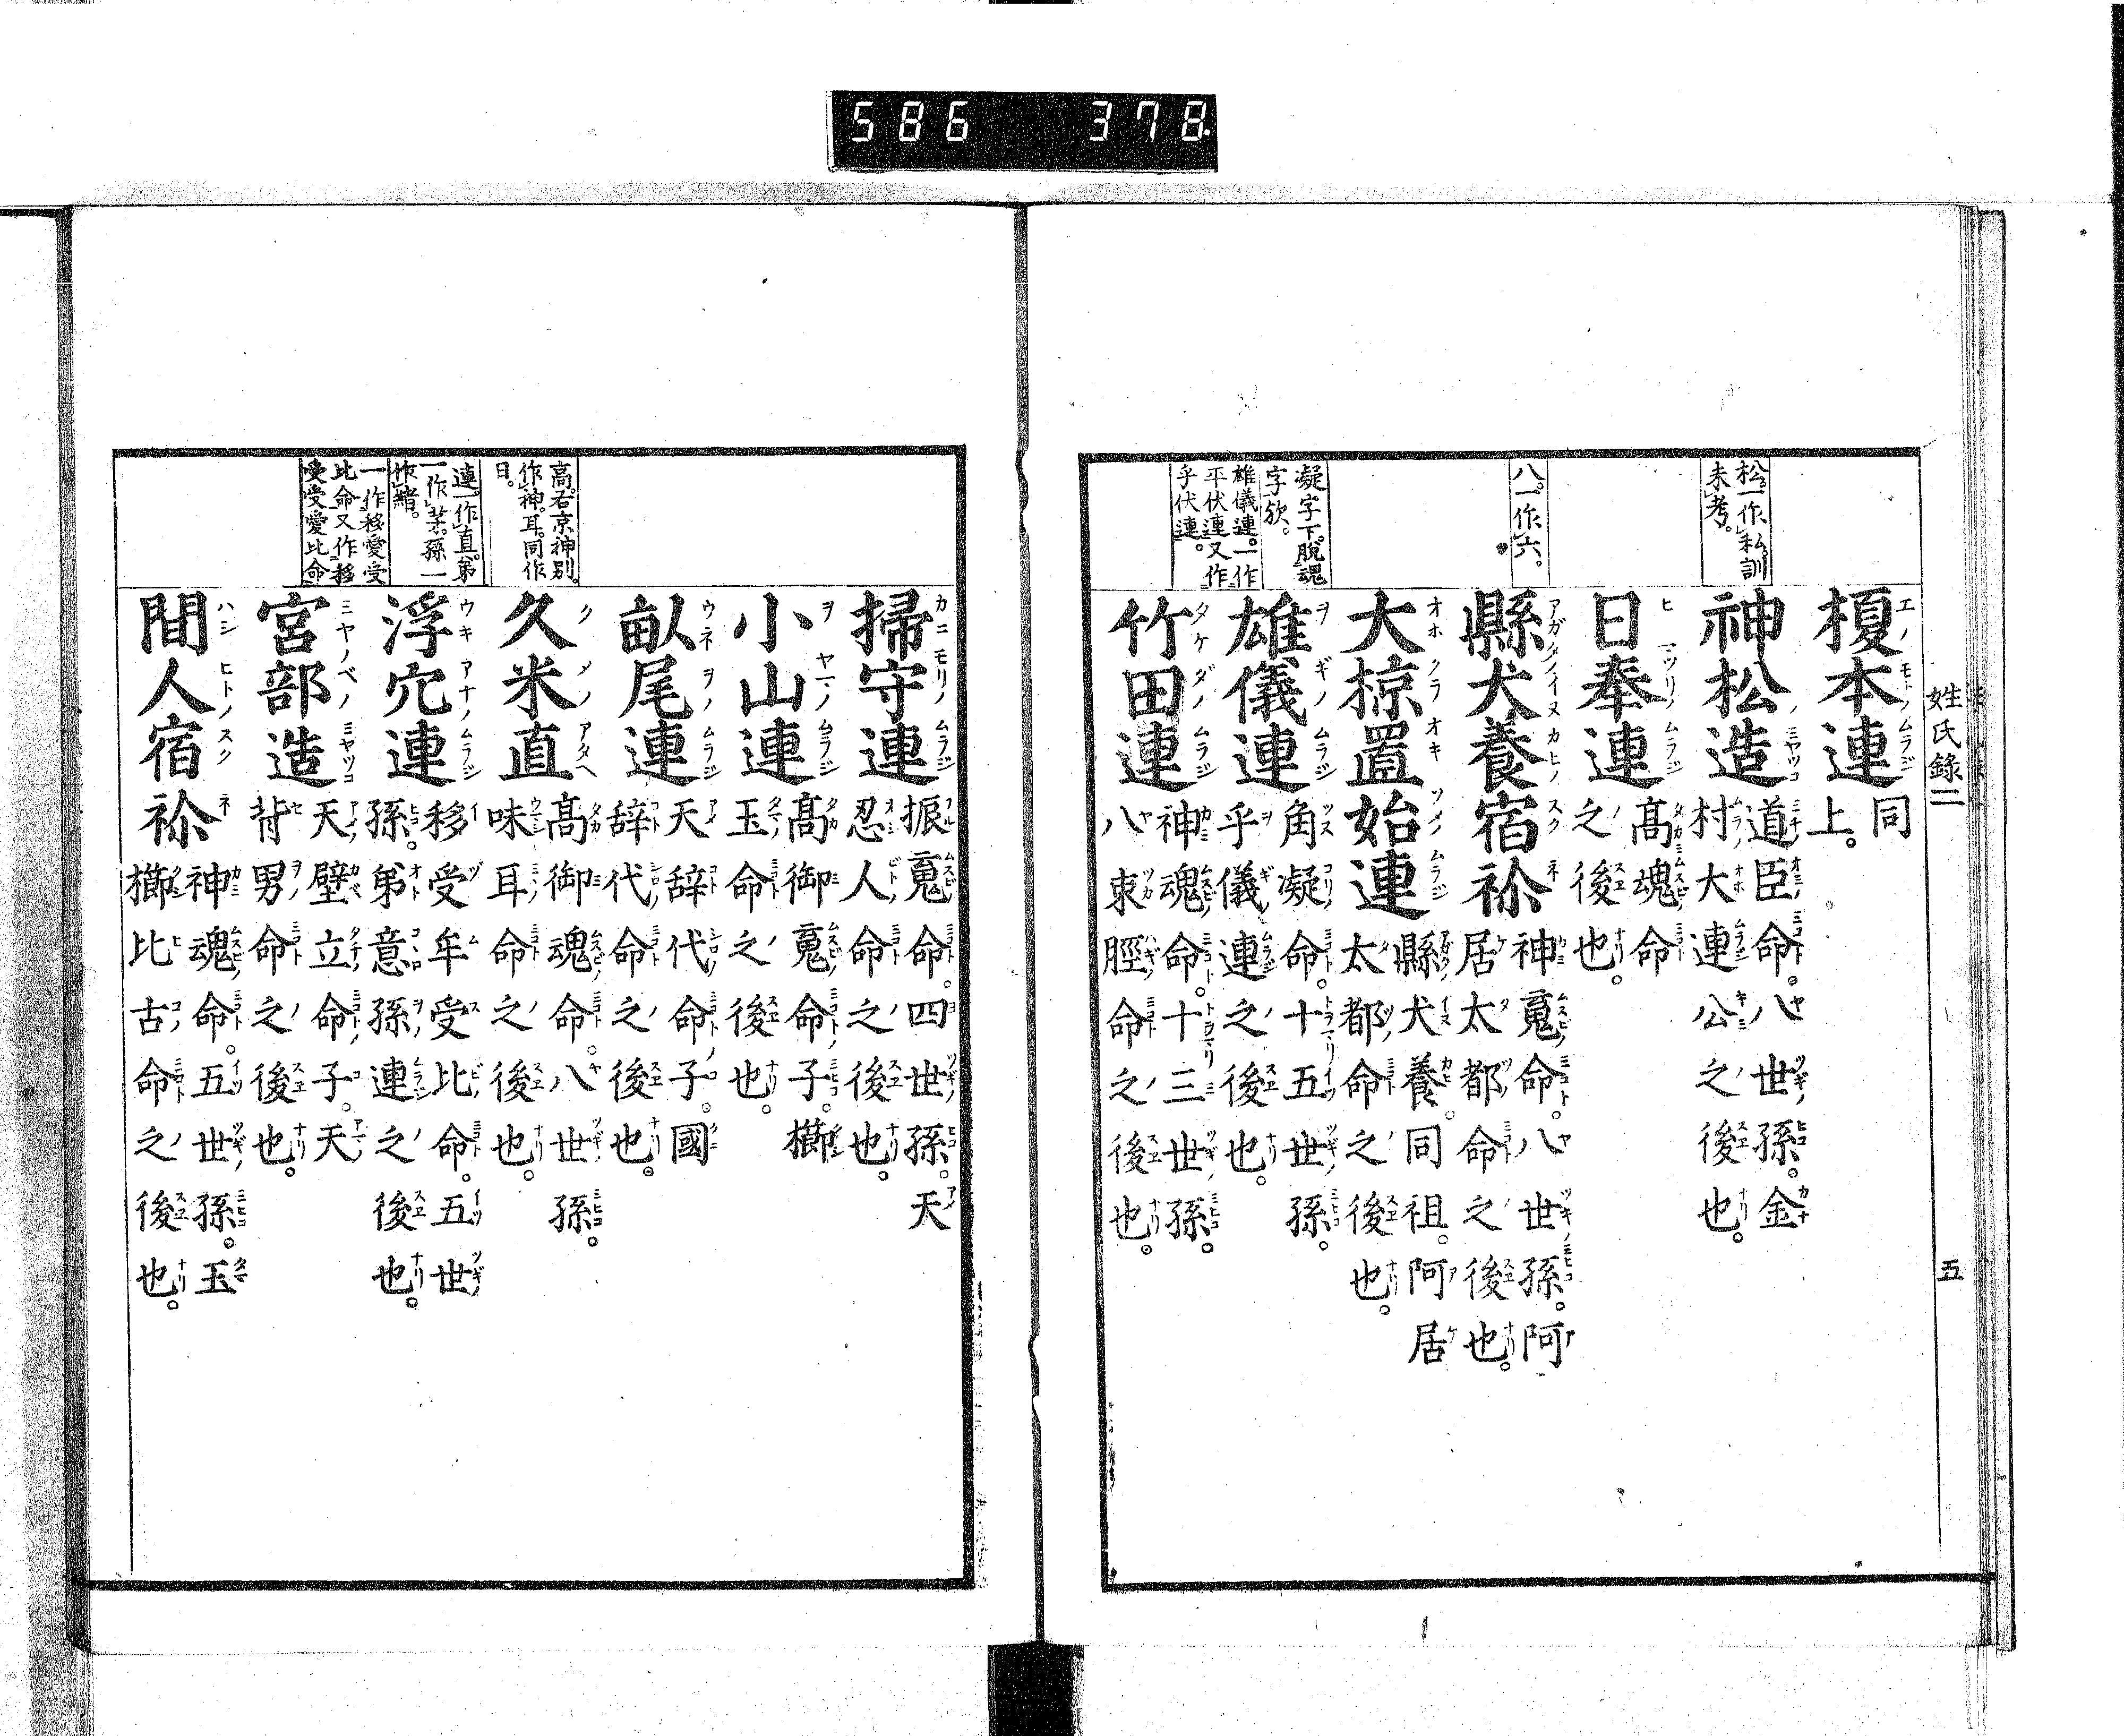 586 378
姓氏錄二 五
松。一作私訓
未考。
八。一作六。
凝字下。脫魂
字歟。
雄儀連。一作
平伏連。又作
乎伏連。
榎本連
同
上。
神松造
道臣命。八世孫。金
村大連公之後也。
日奉連
高魂命
之後也。
縣犬養宿祢
神䰟命。八世孫。阿
居太都命之後也。
大椋置始連
縣犬養。同祖。阿居
太都命之後也。
雄儀連
角凝命。十五世孫。
乎儀連之後也。
竹田連
神魂命。十三世孫。
八束脛命之後也。
高。右京神別。
作神。耳。同作
日。
連。一作直。弟
一作茅。孫一
作緒。
一作移愛受
比命又作移
愛受愛比命
掃守連
振䰟命。四世孫。天
忍人命之後也。
小山連
髙御䰟命子。櫛
玉命之後也。
畝尾連
天辞代命子。國
辞代命之後也。
久米直
髙御魂命。八世孫。
味耳命之後也。
浮穴連
移受牟受比命。五世
孫。弟意孫連之後也。
宮部造
天壁立命子。天
背男命之後也。
間人宿祢
神魂命。五世孫。玉
櫛比古命之後也。